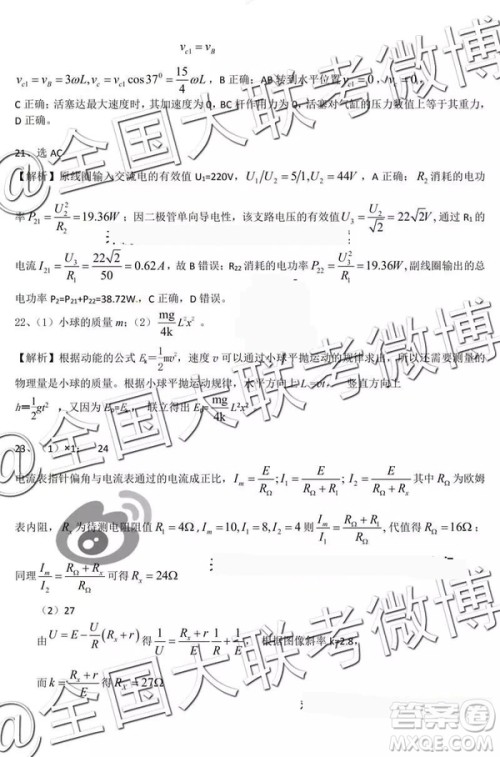 v_{c1} = v_B
v_{c1} = v_B = 3ωL, v_c = v_{c1} cos37⁰ = \frac{15}{4} ωL，B 正确；AB 转到水平位置 v_{c1} = 0，v_c = 0，
C 正确；活塞达最大速度时，其加速度为 0，BC 杆作用力为 0，活塞对气缸的压力数值上等于其重力，
D 正确。
21、选 AC
【解析】原线圈输入交流电的有效值 U₁=220V，U₁/U₂ = 5/1, U₂ = 44V，A 正确；R₂ 消耗的电功
率 P_{21} = \frac{U_2^2}{R_2} = 19.36W；因二极管单向导电性，该支路电压的有效值 U_3 = \frac{U_2}{\sqrt{2}} = 22\sqrt{2}V，通过 R₁ 的
电流 I_{21} = \frac{U_3}{R_1} = \frac{22\sqrt{2}}{50} = 0.62A，故 B 错误；R₂₂ 消耗的电功率 P_{22} = \frac{U_3^2}{R_1} = 19.36W, 副线圈输出的总
电功率 P₂=P₂₁+P₂₂=38.72W，C 正确，D 错误。
22、（1）小球的质量 m；（2）\frac{mg}{4k}L²x²。
【解析】根据动能的公式 E_k=\frac{1}{2}mv²，速度可以根据小球平抛运动的规律求出，所以还需要测量的
物理量是小球的质量 m。根据小球平抛运动规律，水平方向上 L=vt， 竖直方向上
h=\frac{1}{2}gt²，又因为 E_P=E_k，联立得出 E_P=\frac{mg}{4k}L²x²
23、（1）×1； 24
电流表指针偏角与电流表通过的电流成正比，I_m = \frac{E}{R_Ω}; I_1 = \frac{E}{R_Ω + R_1}; I_2 = \frac{E}{R_Ω + R_x} 其中 R_Ω 为欧姆
表内阻，R_x 为待测电阻阻值 R_1 = 4Ω, I_m = 10, I_1 = 8, I_2 = 4 则 \frac{I_m}{I_1} = \frac{R_Ω + R_1}{R_Ω}, 代值得 R_Ω = 16Ω；
同理 \frac{I_m}{I_2} = \frac{R_Ω + R_x}{R_Ω} 可得 R_x = 24Ω
（2）27
由 U = E - \frac{U}{R}(R_x + r) 得 \frac{1}{U} = \frac{R_x + r}{E} \frac{1}{R} + \frac{1}{E}，根据图像斜率 k=2.8，
而 k = \frac{R_x + r}{E} 得 R_x = 27Ω
@全国大联考微博
@全国大联考微博
@全国大联考微博
答案卷
MXQE.COM